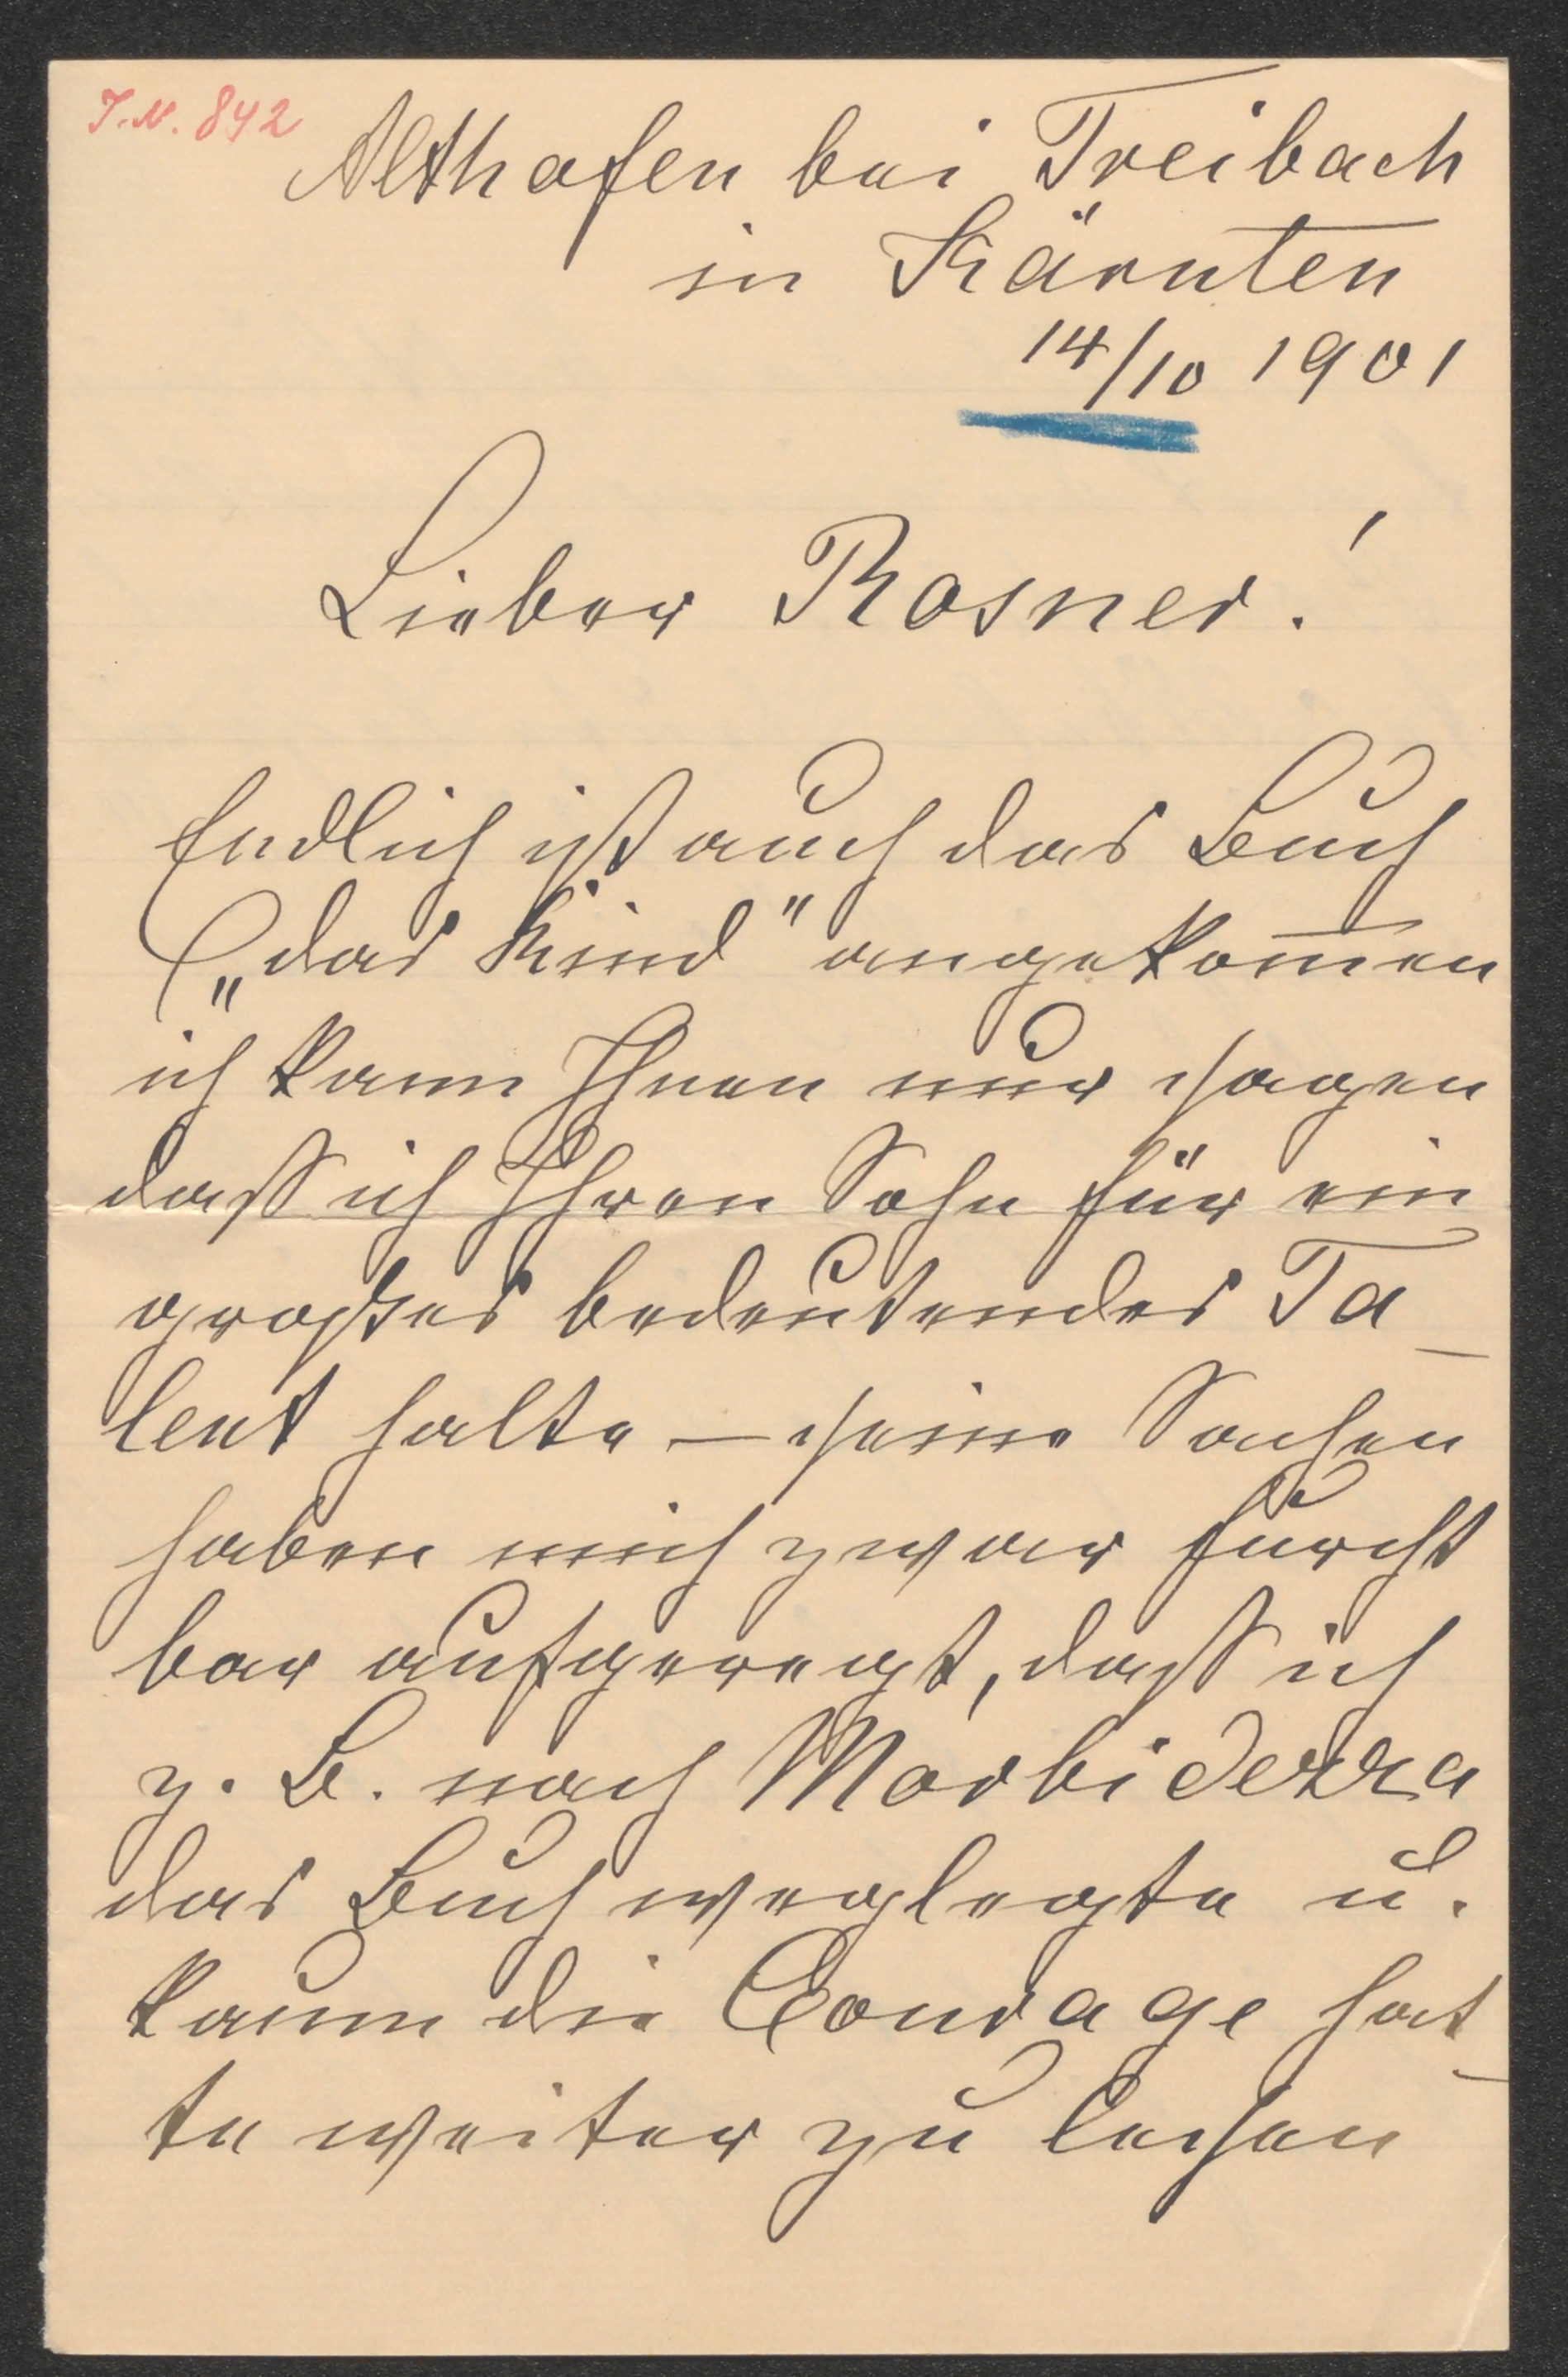 I.N. 842
Althofen bei Treibach
in Kärnten
14/10 1901
Lieber Rosner!
Endlich ist auch das Buch
„das Kind" angekom̅en
ich kann Ihnen nur sagen
daß ich Ihren Sohn für ein
großes bedeutendes Ta-
lent halte – seine Sachen
haben mich zwar furcht
bar aufgeregt, daß ich
z. B. nach Morbidezza
das Buch weglegte u.
kaum die Courage hat-
te weiter zu lesen